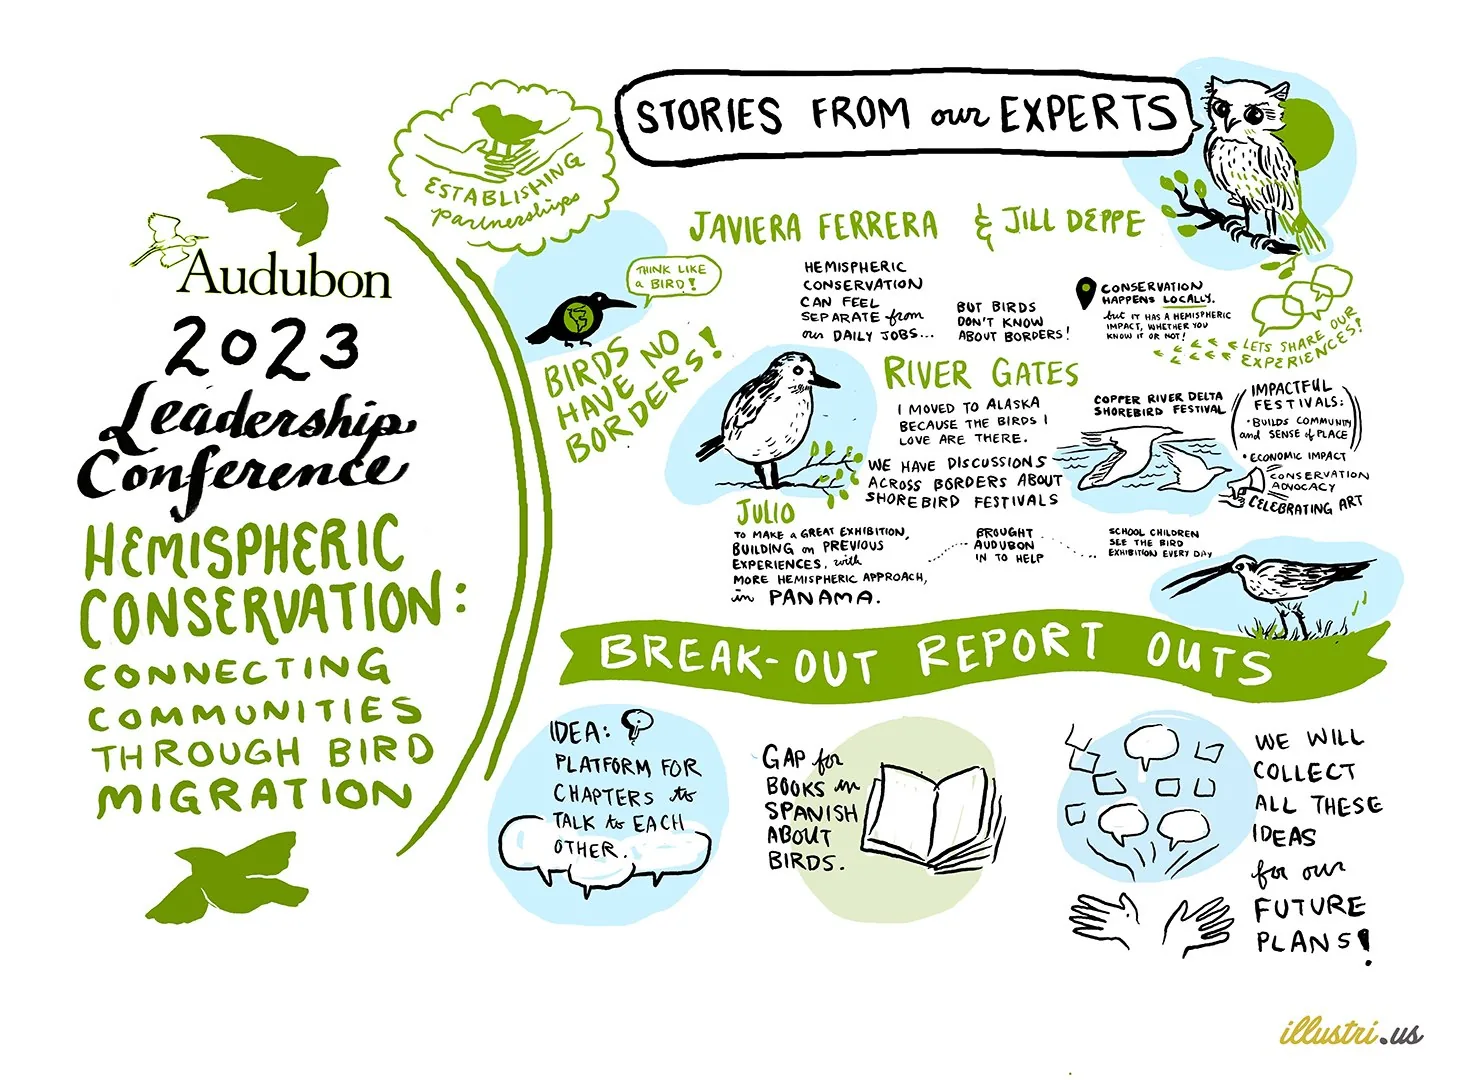 Audubon
2023
Leadership
Conference
HEMISPHERIC
CONSERVATION:
CONNECTING
COMMUNITIES
THROUGH BIRD
MIGRATION
ESTABLISHING
partnerships
STORIES FROM our EXPERTS
THINK LIKE
a BIRD!
BIRDS
HAVE NO
BORDERS!
JAVIERA FERRERA & JILL DEPPE
HEMISPHERIC
CONSERVATION
CAN FEEL
SEPARATE from
our DAILY JOBS...
BUT BIRDS
DON'T KNOW
ABOUT BORDERS!
CONSERVATION
HAPPENS LOCALLY.
but IT HAS A HEMISPHERIC
IMPACT, WHETHER YOU
KNOW IT OR NOT!
LETS SHARE OUR
EXPERIENCES!
RIVER GATES
I MOVED TO ALASKA
BECAUSE THE BIRDS I
LOVE ARE THERE.
WE HAVE DISCUSSIONS
ACROSS BORDERS ABOUT
SHOREBIRD FESTIVALS
COPPER RIVER DELTA
SHOREBIRD FESTIVAL
IMPACTFUL
FESTIVALS:
• BUILDS COMMUNITY
and SENSE of PLACE
• ECONOMIC IMPACT
CONSERVATION
ADVOCACY
CELEBRATING ART
JULIO
TO MAKE A GREAT EXHIBITION,
BUILDING on PREVIOUS
EXPERIENCES, with
MORE HEMISPHERIC APPROACH,
in PANAMA.
BROUGHT
AUDUBON
IN TO HELP
SCHOOL CHILDREN
SEE THE BIRD
EXHIBITION EVERY DAY
BREAK-OUT REPORT OUTS
IDEA:
PLATFORM FOR
CHAPTERS to
TALK to EACH
OTHER.
GAP for
BOOKS in
SPANISH
ABOUT
BIRDS.
WE WILL
COLLECT
ALL THESE
IDEAS
for our
FUTURE
PLANS!
illustri.us